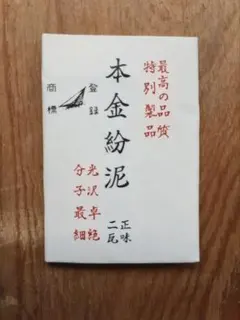 最高の品質
特別製品
登録
商標
本金紛泥
光沢卓絶
分子最細
正味
二瓦